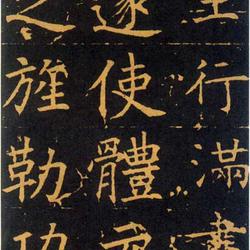 行滿
遂使體
之旌勒功